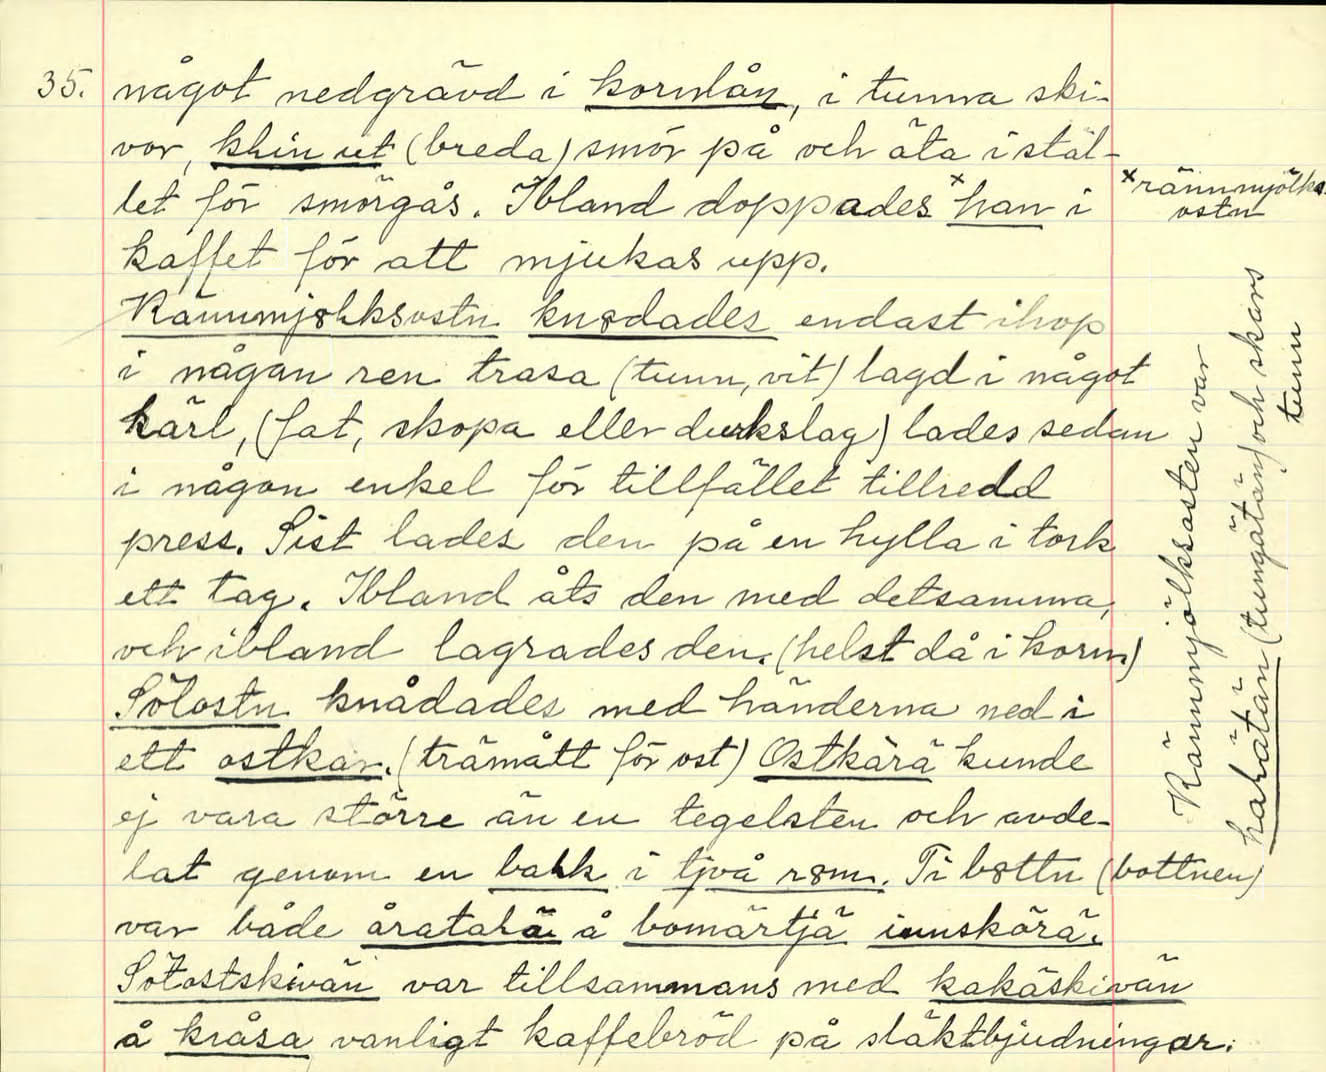 35. något nedgrävd i kornlån, i tunna ski-
vor, khin ut (breda) smör på och äta i stäl-
let för smörgås. Ibland doppades x han i
x rännmjölks
ostn
kaffet för att mjukas upp.
Rännmj8hksostn kn8dades endast ihop
i någon ren trasa (tunn, vit) lagd i något
kärl, (fat, skopa eller durkslag) lades sedan
i någon enkel för tillfället tillredd
press. Sist lades den på en hylla i tork
ett tag. Ibland åts den med detsamma,
och ibland lagrades den. (helst då i korn)
Sötostn knådades med händerna ned i
ett ostkar. (trämått för ost) Ostkärä kunde
ej vara större än en tegelsten och avde-
lat genom en bahk i tjvå r8m. Ti b8ttn (bottnen)
var både åratalä å bomärtjä innskörä.
Sötostskivän var tillsammans med kakäskivän
å kråsa vanligt kaffebröd på släktbjudningar.
Rännmjölksosten var
(tungätan) och skars
tunn